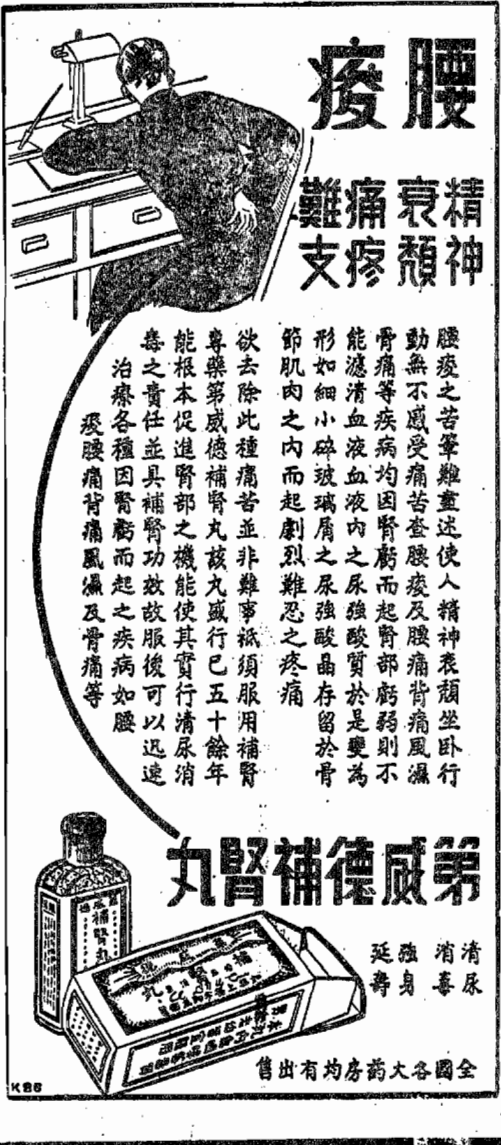 腰痠
精神
衰頹
痛疼
難支
腰痠之苦筆難盡述使人精神衰頹坐卧行
動無不感受痛苦查腰痠及腰痛背痛風濕
骨痛等疾病均因腎虧而起腎部虧弱則不
能濾清血液血液內之尿強酸質於是變為
形如細小碎玻璃屑之尿強酸晶存留於骨
節肌肉之內而起劇烈難忍之疼痛
欲去除此種痛苦並非難事祗須服用補腎
專藥第威德補腎丸該丸盛行已五十餘年
能根本促進腎部之機能使其實行清尿消
毒之責任並具補腎功效故服後可以迅速
治療各種因腎虧而起之疾病如腰
痠腰痛背痛風濕及骨痛等
第威德補腎丸
清尿
消毒
強身
延壽
全國各大葯房均有出售
補腎丸
K86